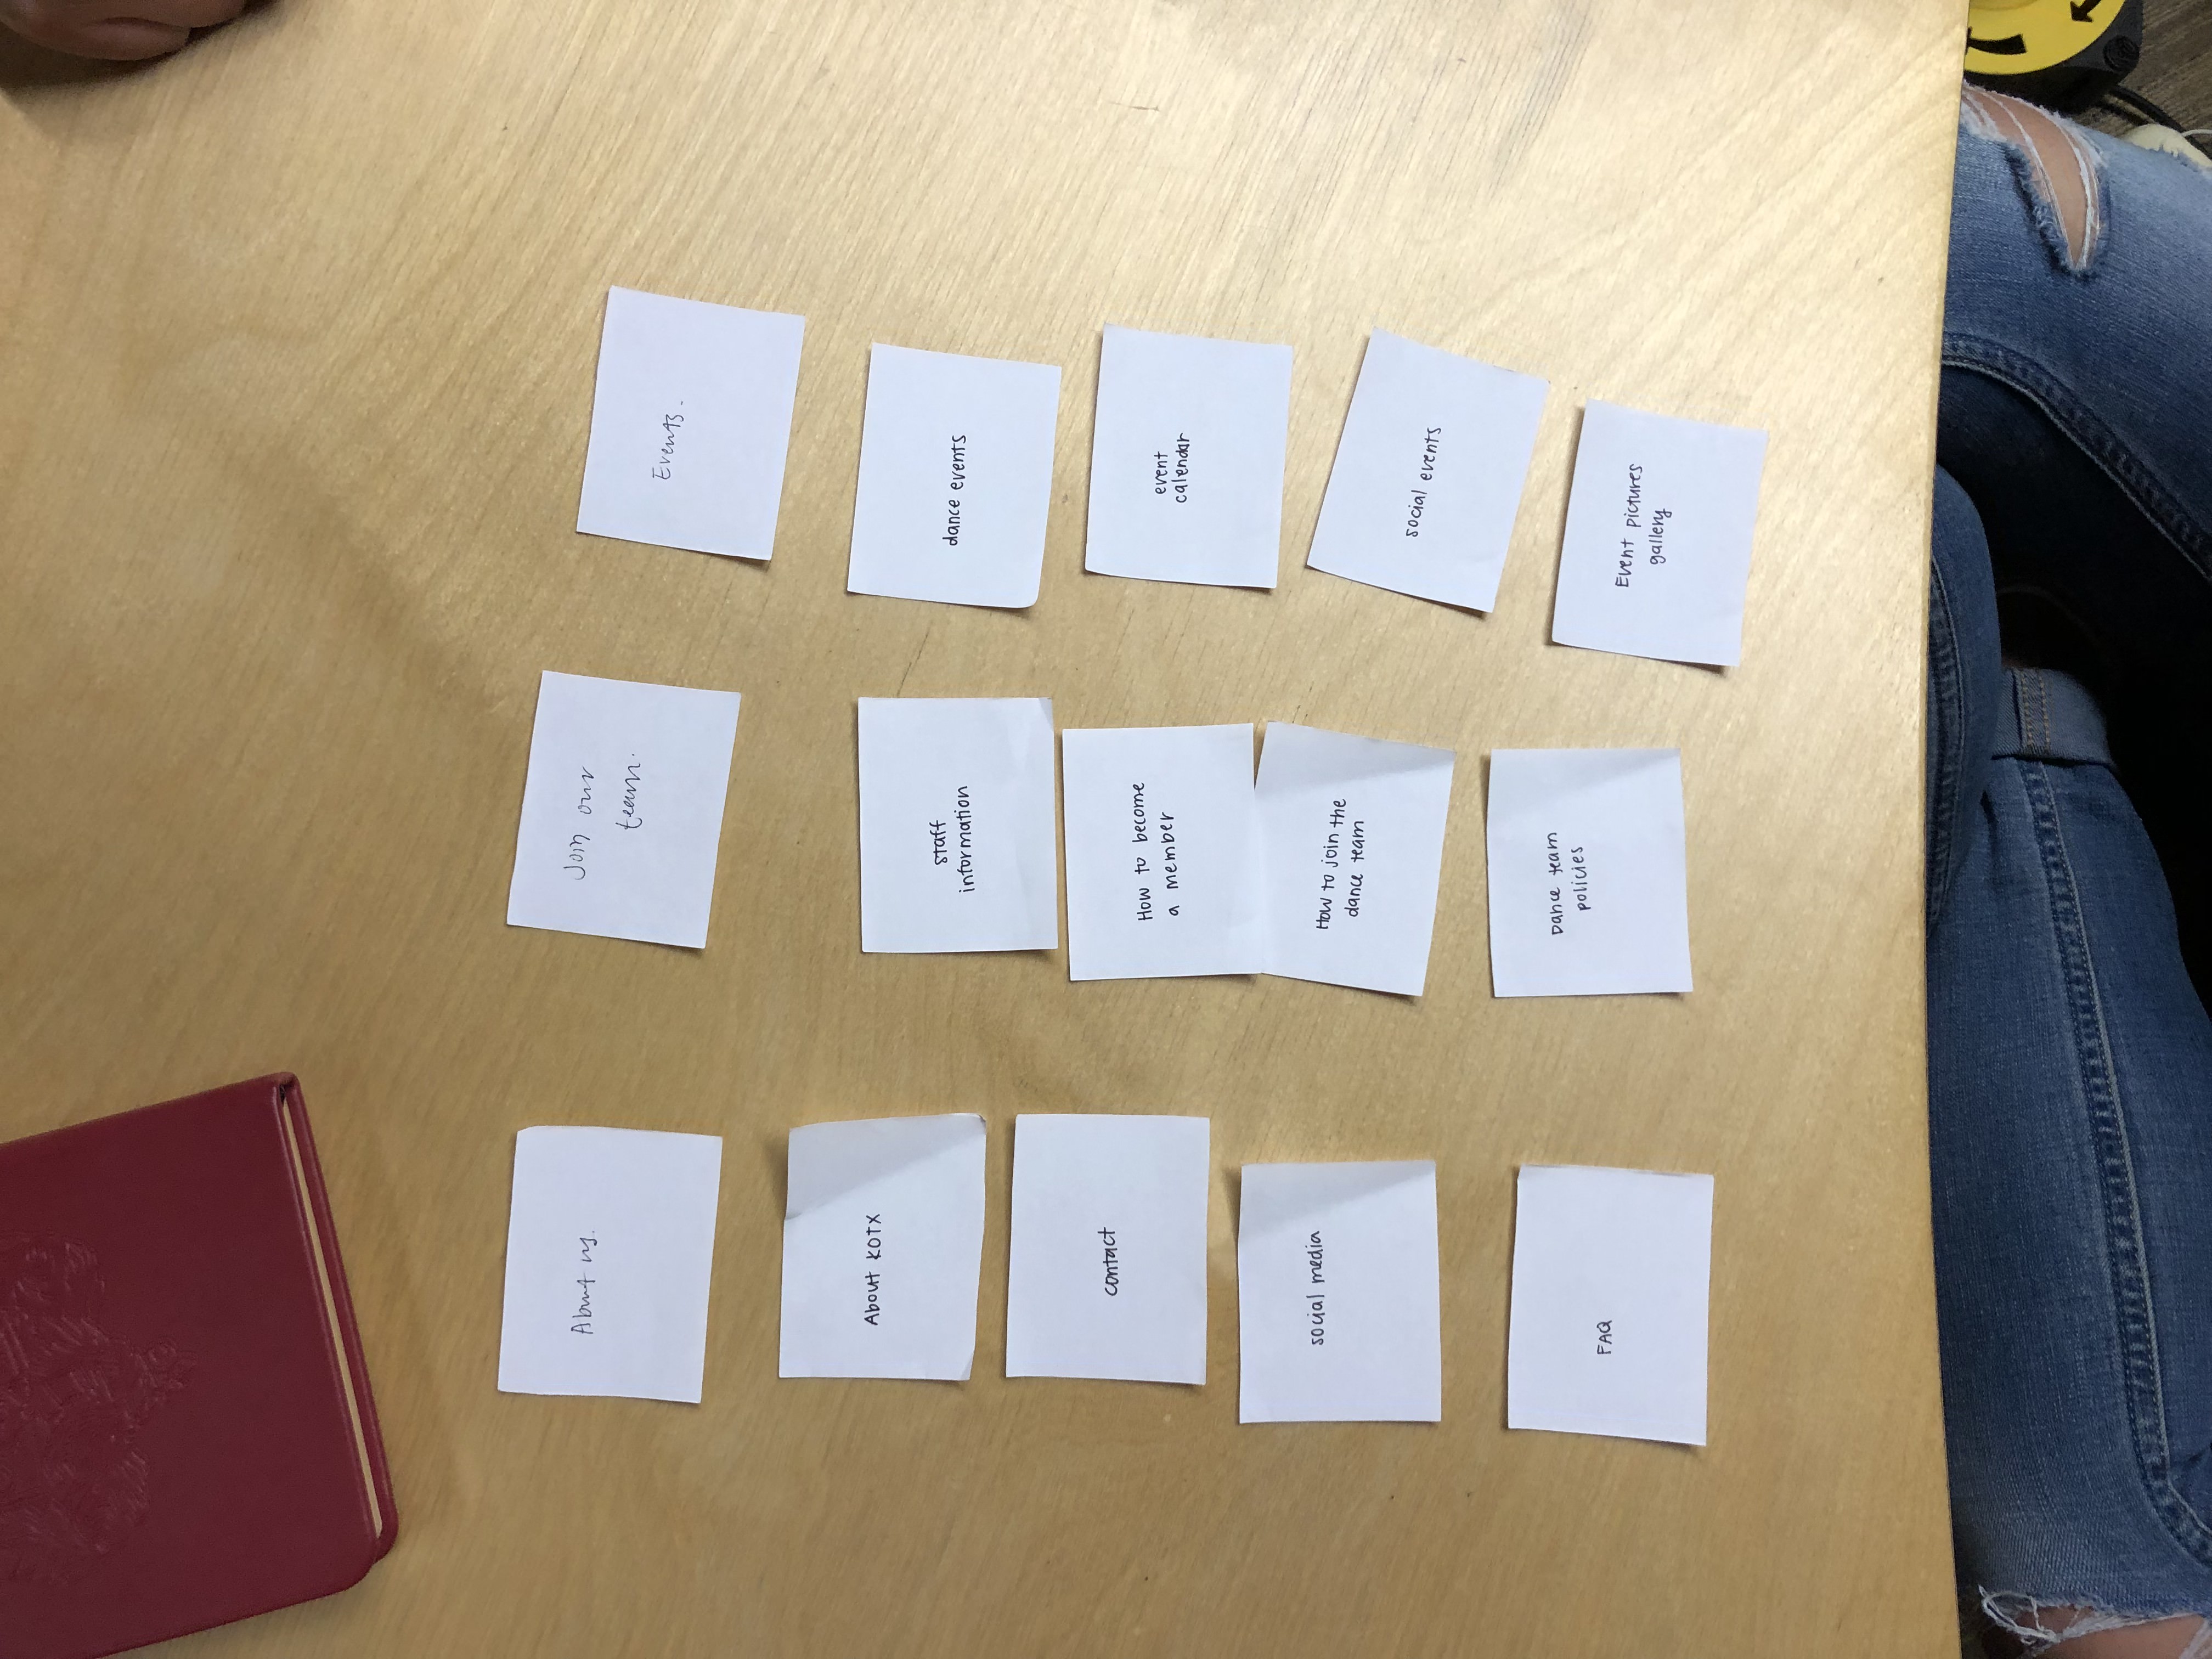 About us.
About KOTX
contact
social media
FAQ
Join our
team.
staff
information
How to become
a member
How to join the
dance team
Dance team
policies
Events.
dance events
event
calendar
social events
Event pictures
gallery